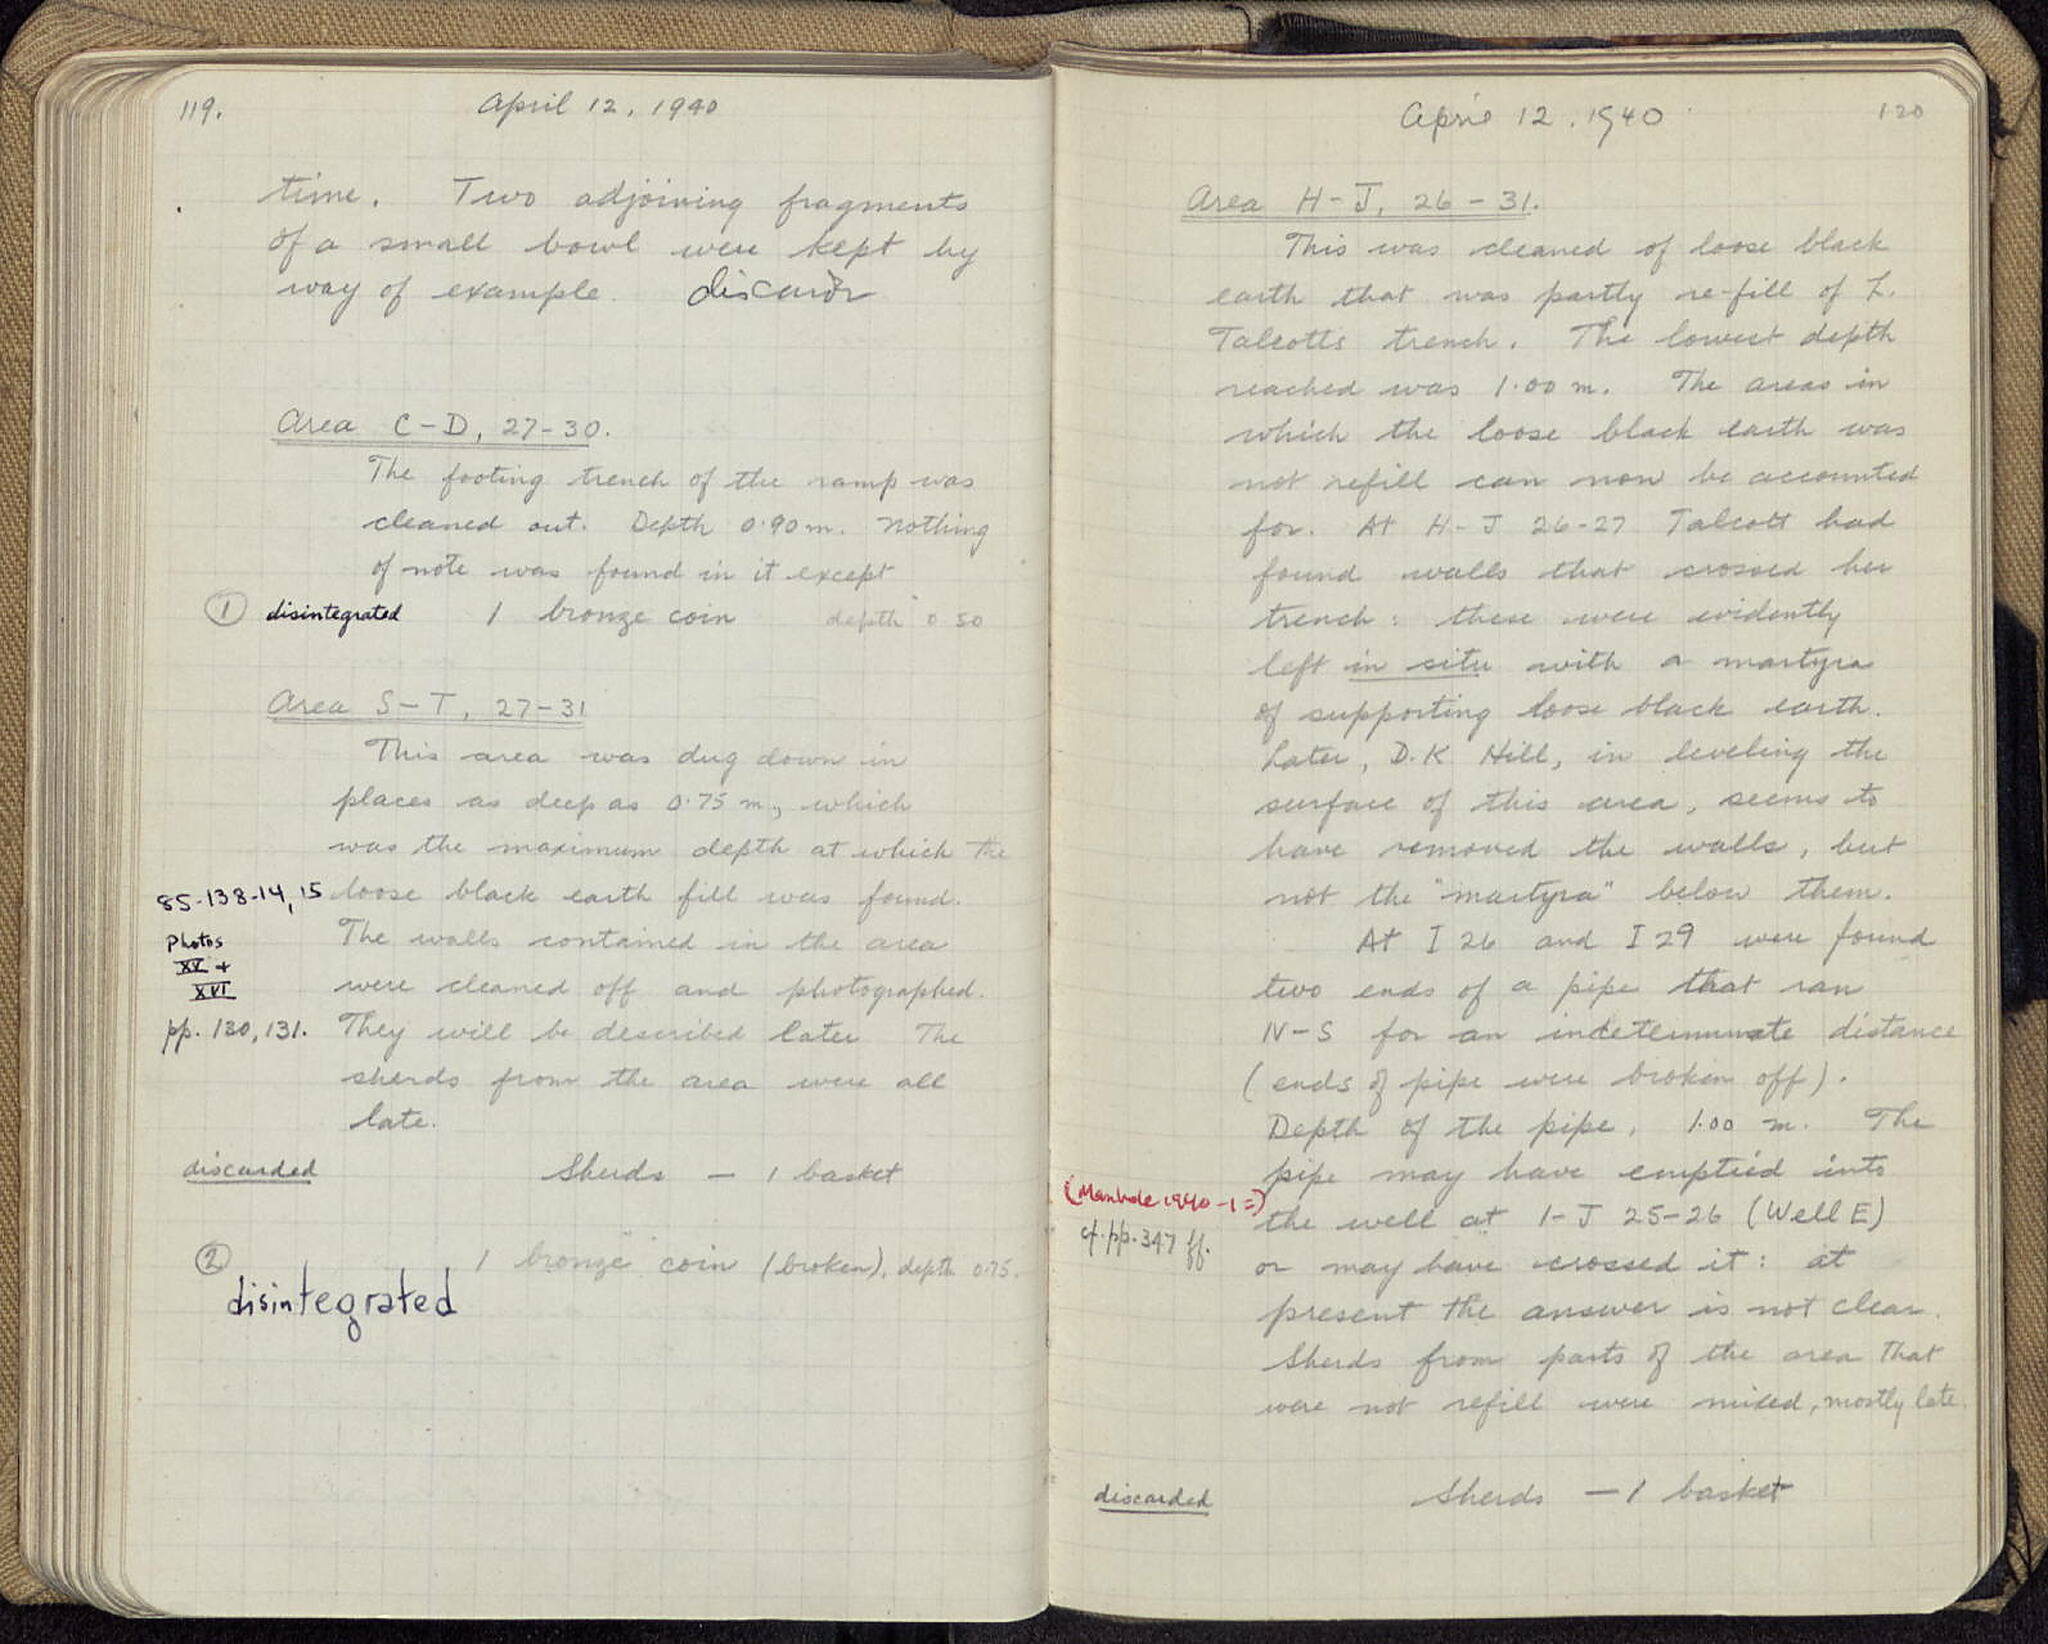 119.
April 12, 1940
time. Two adjoining fragments
of a small bowl were kept by
way of example. discard
Area C-D, 27-30.
The footing trench of the ramp was
cleaned out. Depth 0.90 m. Nothing
of note was found in it except
① disintegrated 1 bronze coin depth 0 50
Area S-T, 27-31
This area was dug down in
places as deep as 0.75 m., which
was the maximum depth at which the
85-138-14, 15 loose black earth fill was found.
Photos The walls contained in the area
XV +
XVI were cleaned off and photographed.
pp. 130, 131. They will be described later The
sherds from the area were all
late.
discarded Sherds — 1 basket
② 1 bronze coin (broken), depth 0.75.
disintegrated
April 12, 1940
120
Area H-J, 26-31.
This was cleaned of loose black
earth that was partly re-fill of L.
Talcotts trench. The lowest depth
reached was 1.00 m. The areas in
which the loose black earth was
not refill can now be accounted
for. At H-J 26-27 Talcott had
found walls that crossed her
trench: these were evidently
left in situ with a martyra
of supporting loose black earth.
Later, D.K Hill, in leveling the
surface of this area, seems to
have removed the walls, but
not the "martyra" below them.
At I 26 and I 29 were found
two ends of a pipe that ran
N-S for an indeterminate distance
(ends of pipe were broken off).
Depth of the pipe, 1.00 m. The
pipe may have emptied into
(Manhole 1940-1=) the well at I-J 25-26 (Well E)
cf. pp. 347 ff. or may have crossed it: at
present the answer is not clear.
Sherds from parts of the area that
were not refill were mixed, mostly late.
discarded Sherds — 1 basket